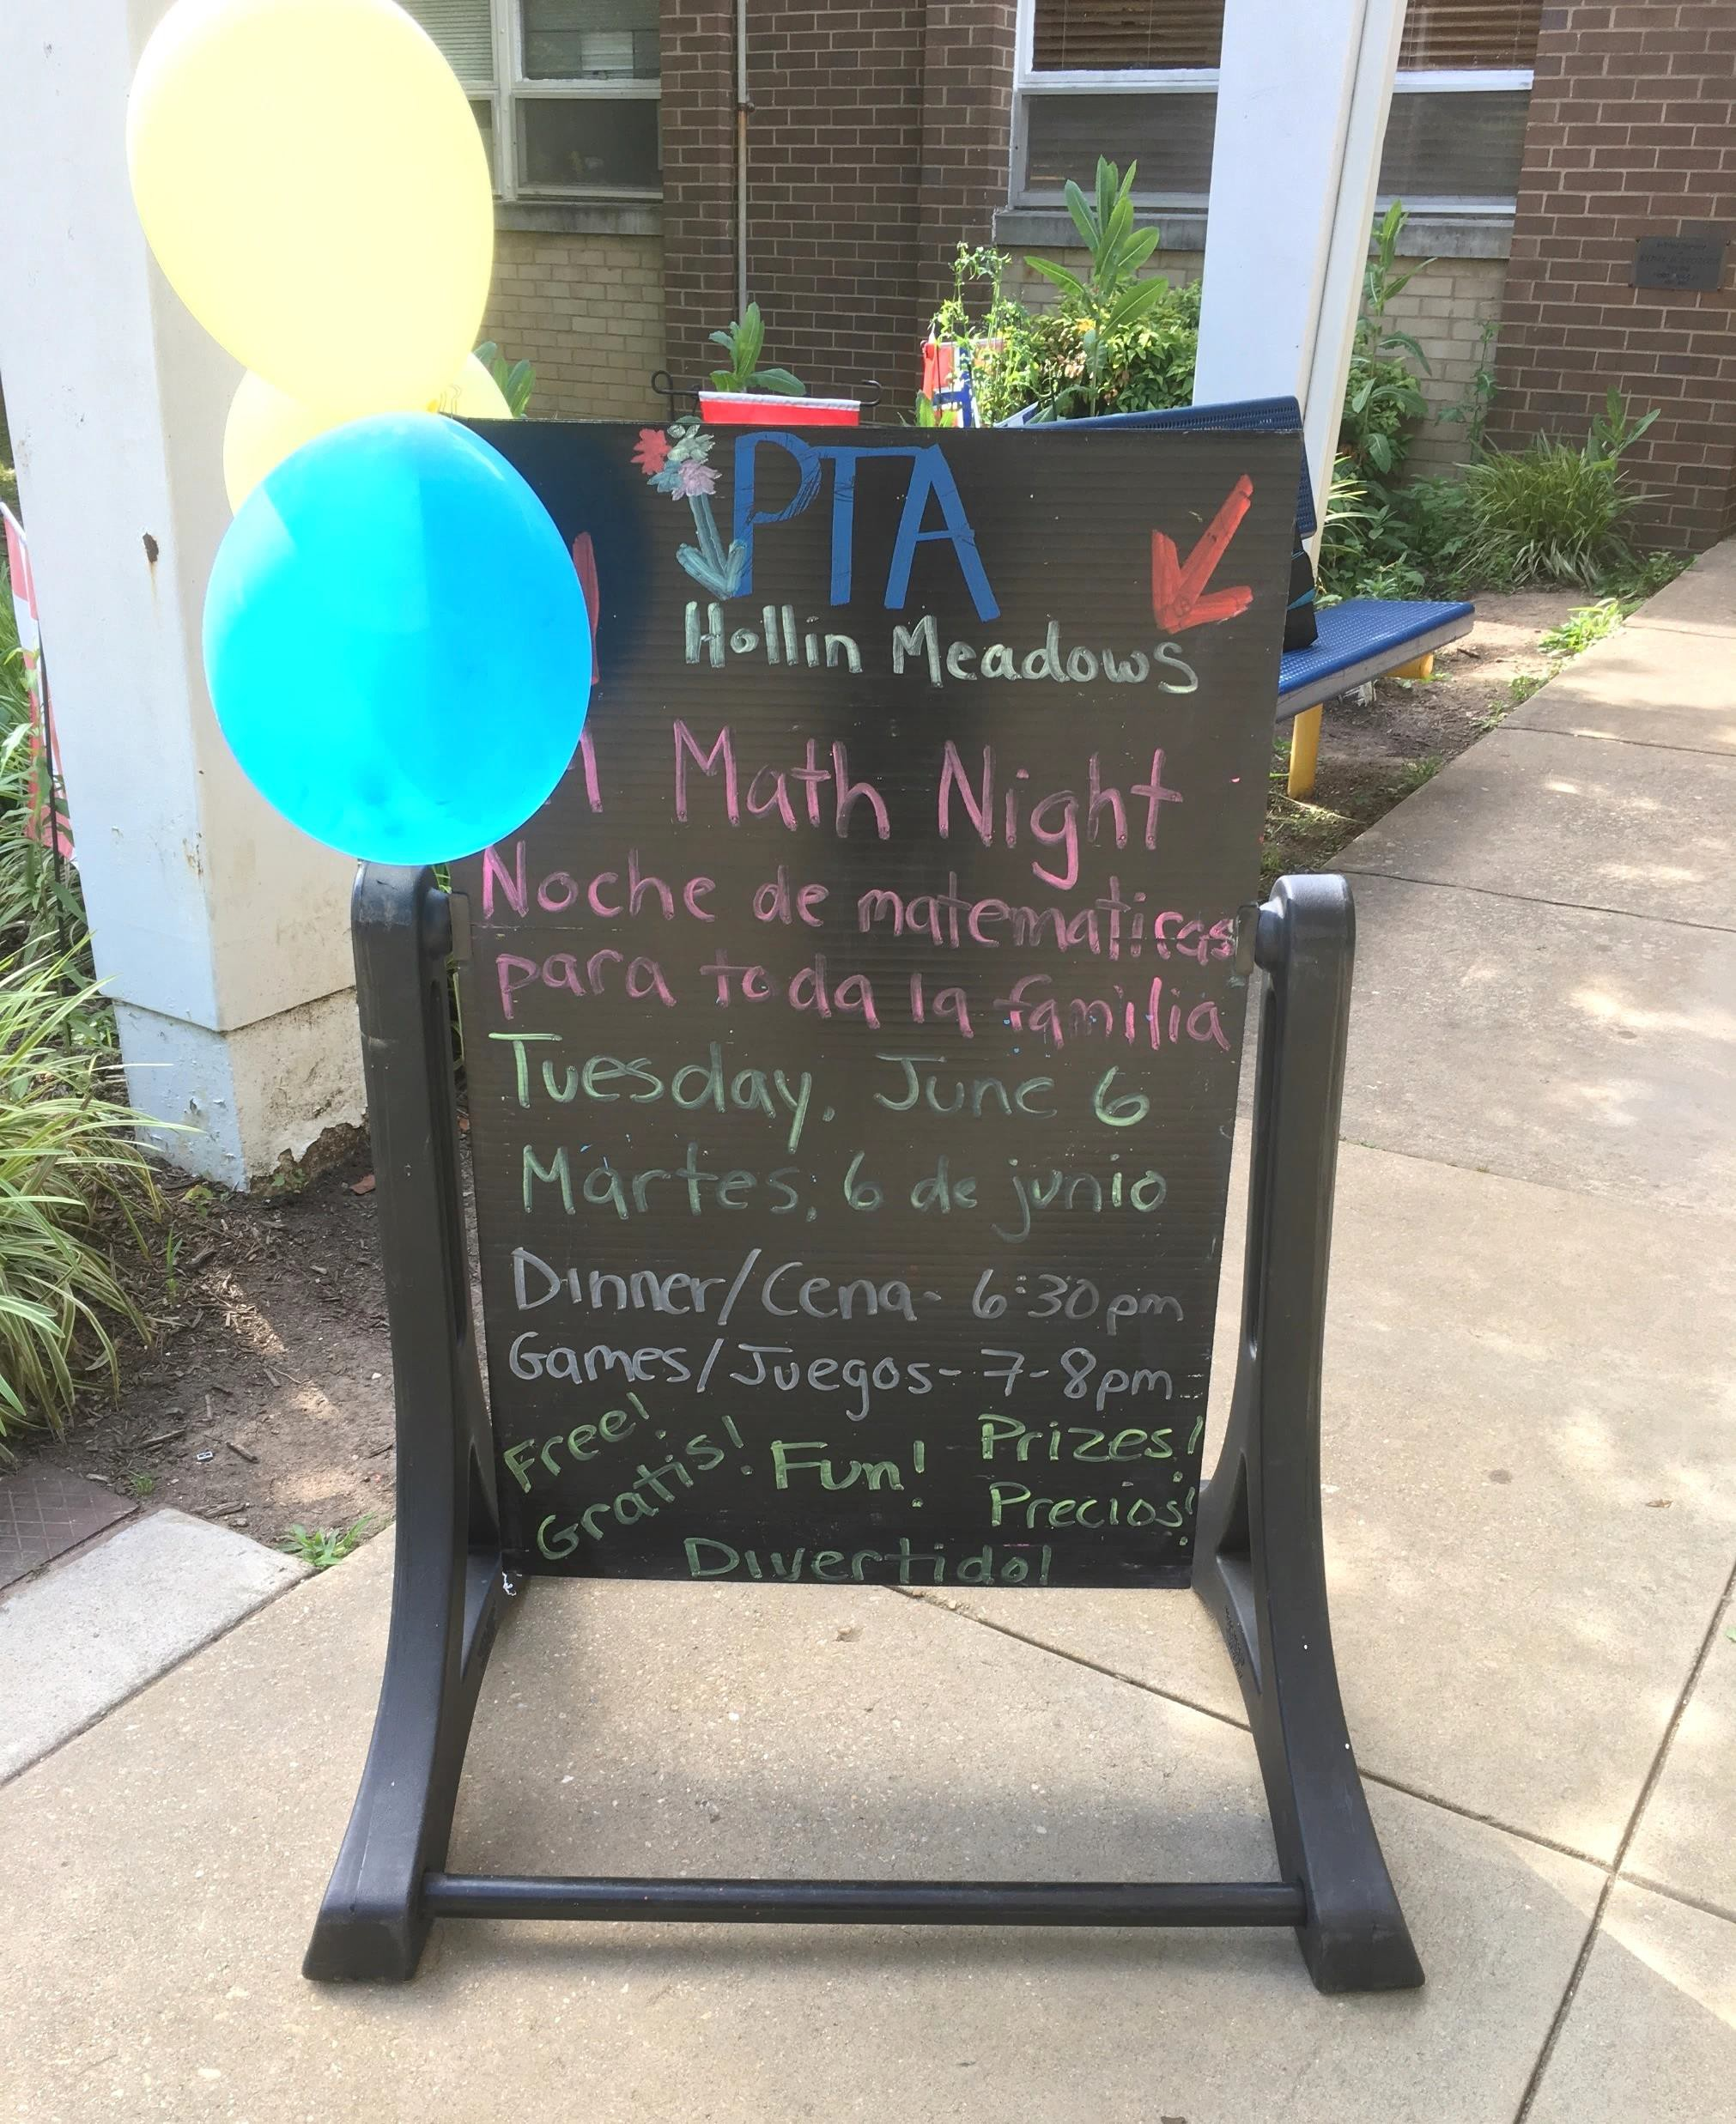 PTA
Hollin Meadows
Math Night
Noche de matematicas
para toda la familia
Tuesday, June 6
Martes, 6 de junio
Dinner/Cena- 6:30pm
Games/Juegos- 7-8pm
Free!
Gratis!
Fun!
Prizes!
Precios!
Divertido!